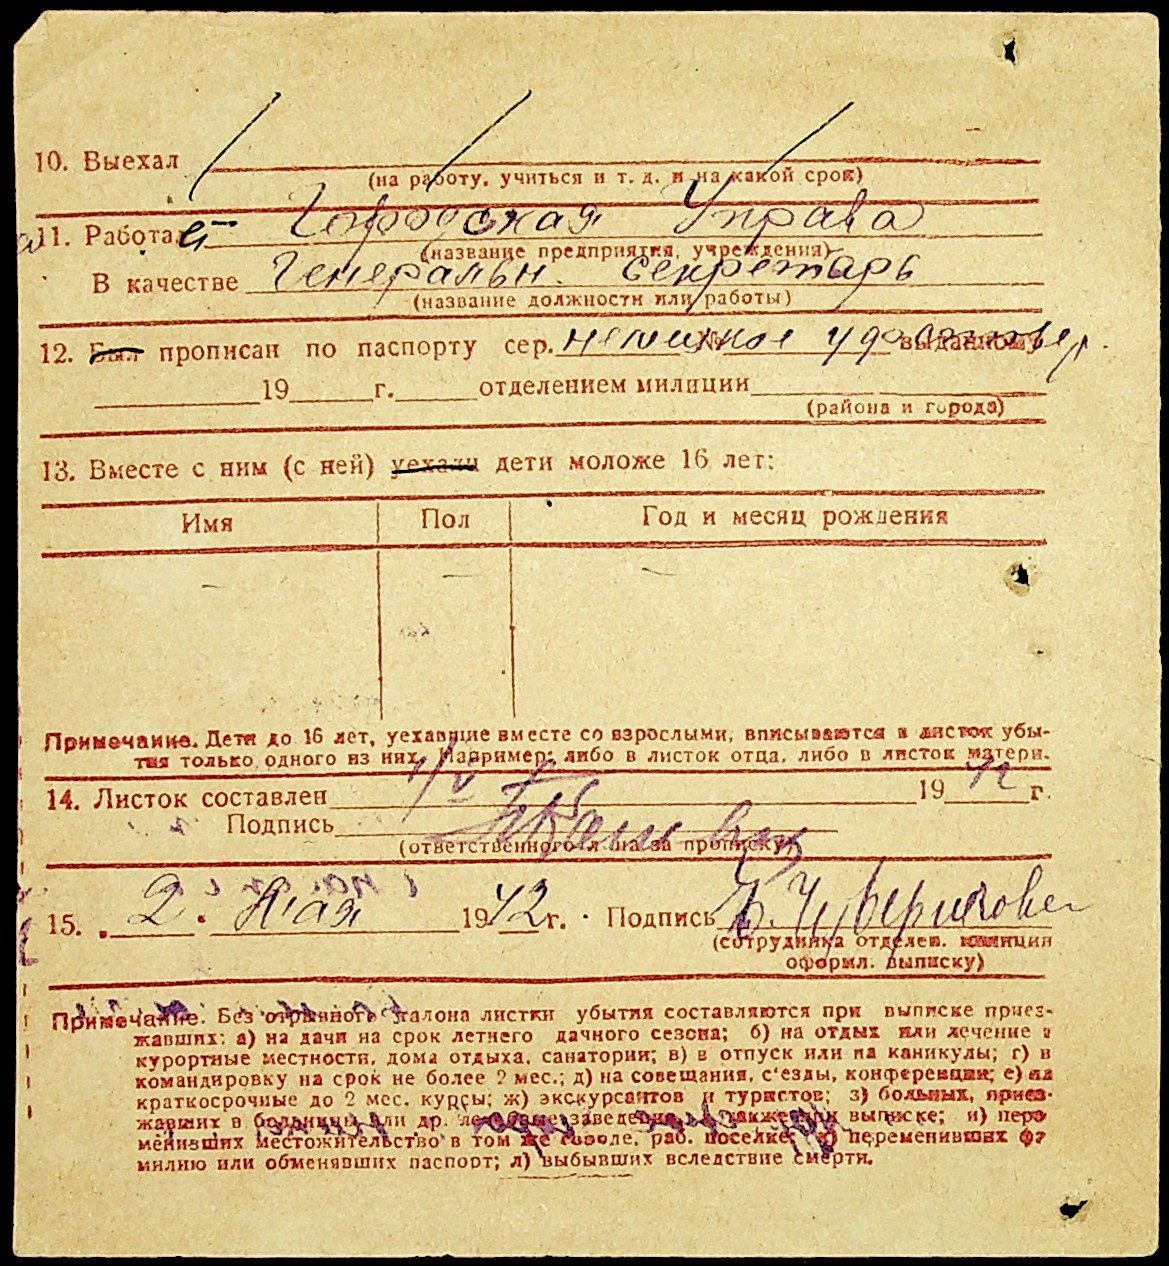 10. Выехал
(на работу, учиться и т. д. и на какой срок)
11. Работает Городская Управа
(название предприятия, учреждения)
В качестве Генеральн. секретарь
(название должности или работы)
12. Был прописан по паспорту сер. немецкое № удостовер. выданному
19 г. отделением милиции
(района и города)
13. Вместе с ним (с ней) уехали дети моложе 16 лет:
Имя Пол Год и месяц рождения
— — —
Примечание. Дети до 16 лет, уехавшие вместе со взрослыми, вписываются в листок убы-
тия только одного из них. Например: либо в листок отца, либо в листок матери.
14. Листок составлен 1/V 1942 г.
Подпись
(ответственного лица за прописку)
15. 2 · Мая 1942 г. · Подпись
(сотрудника отделен. милиции
оформл. выписку)
Примечание. Без отрывного талона листки убытия составляются при выписке приез-
жавших: а) на дачи на срок летнего дачного сезона; б) на отдых или лечение в
курортные местности, дома отдыха, санатории; в) в отпуск или на каникулы; г) в
командировку на срок не более 2 мес.; д) на совещания, с'езды, конференции; е) на
краткосрочные до 2 мес. курсы; ж) экскурсантов и туристов; з) больных, приез-
жавших в больницы или др. лечебные заведения, а также при выписке; и) пере
менивших местожительство в том же городе, раб. поселке; к) переменивших фа
милию или обменявших паспорт; л) выбывших вследствие смерти.